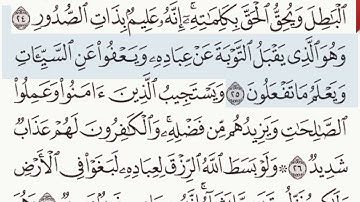 ٱلْبَٰطِلَ وَيُحِقُّ ٱلْحَقَّ بِكَلِمَٰتِهِۦٓ ۚ إِنَّهُۥ عَلِيمٌۢ بِذَاتِ ٱلصُّدُورِ ٢٤
وَهُوَ ٱلَّذِى يَقْبَلُ ٱلتَّوْبَةَ عَنْ عِبَادِهِۦ وَيَعْفُوا۟ عَنِ ٱلسَّيِّـَٔاتِ
وَيَعْلَمُ مَا تَفْعَلُونَ ٢٥ وَيَسْتَجِيبُ ٱلَّذِينَ ءَامَنُوا۟ وَعَمِلُوا۟
ٱلصَّٰلِحَٰتِ وَيَزِيدُهُم مِّن فَضْلِهِۦ ۚ وَٱلْكَٰفِرُونَ لَهُمْ عَذَابٌ
شَدِيدٌ ٢٦ وَلَوْ بَسَطَ ٱللَّهُ ٱلرِّزْقَ لِعِبَادِهِۦ لَبَغَوْا۟ فِى ٱلْأَرْضِ